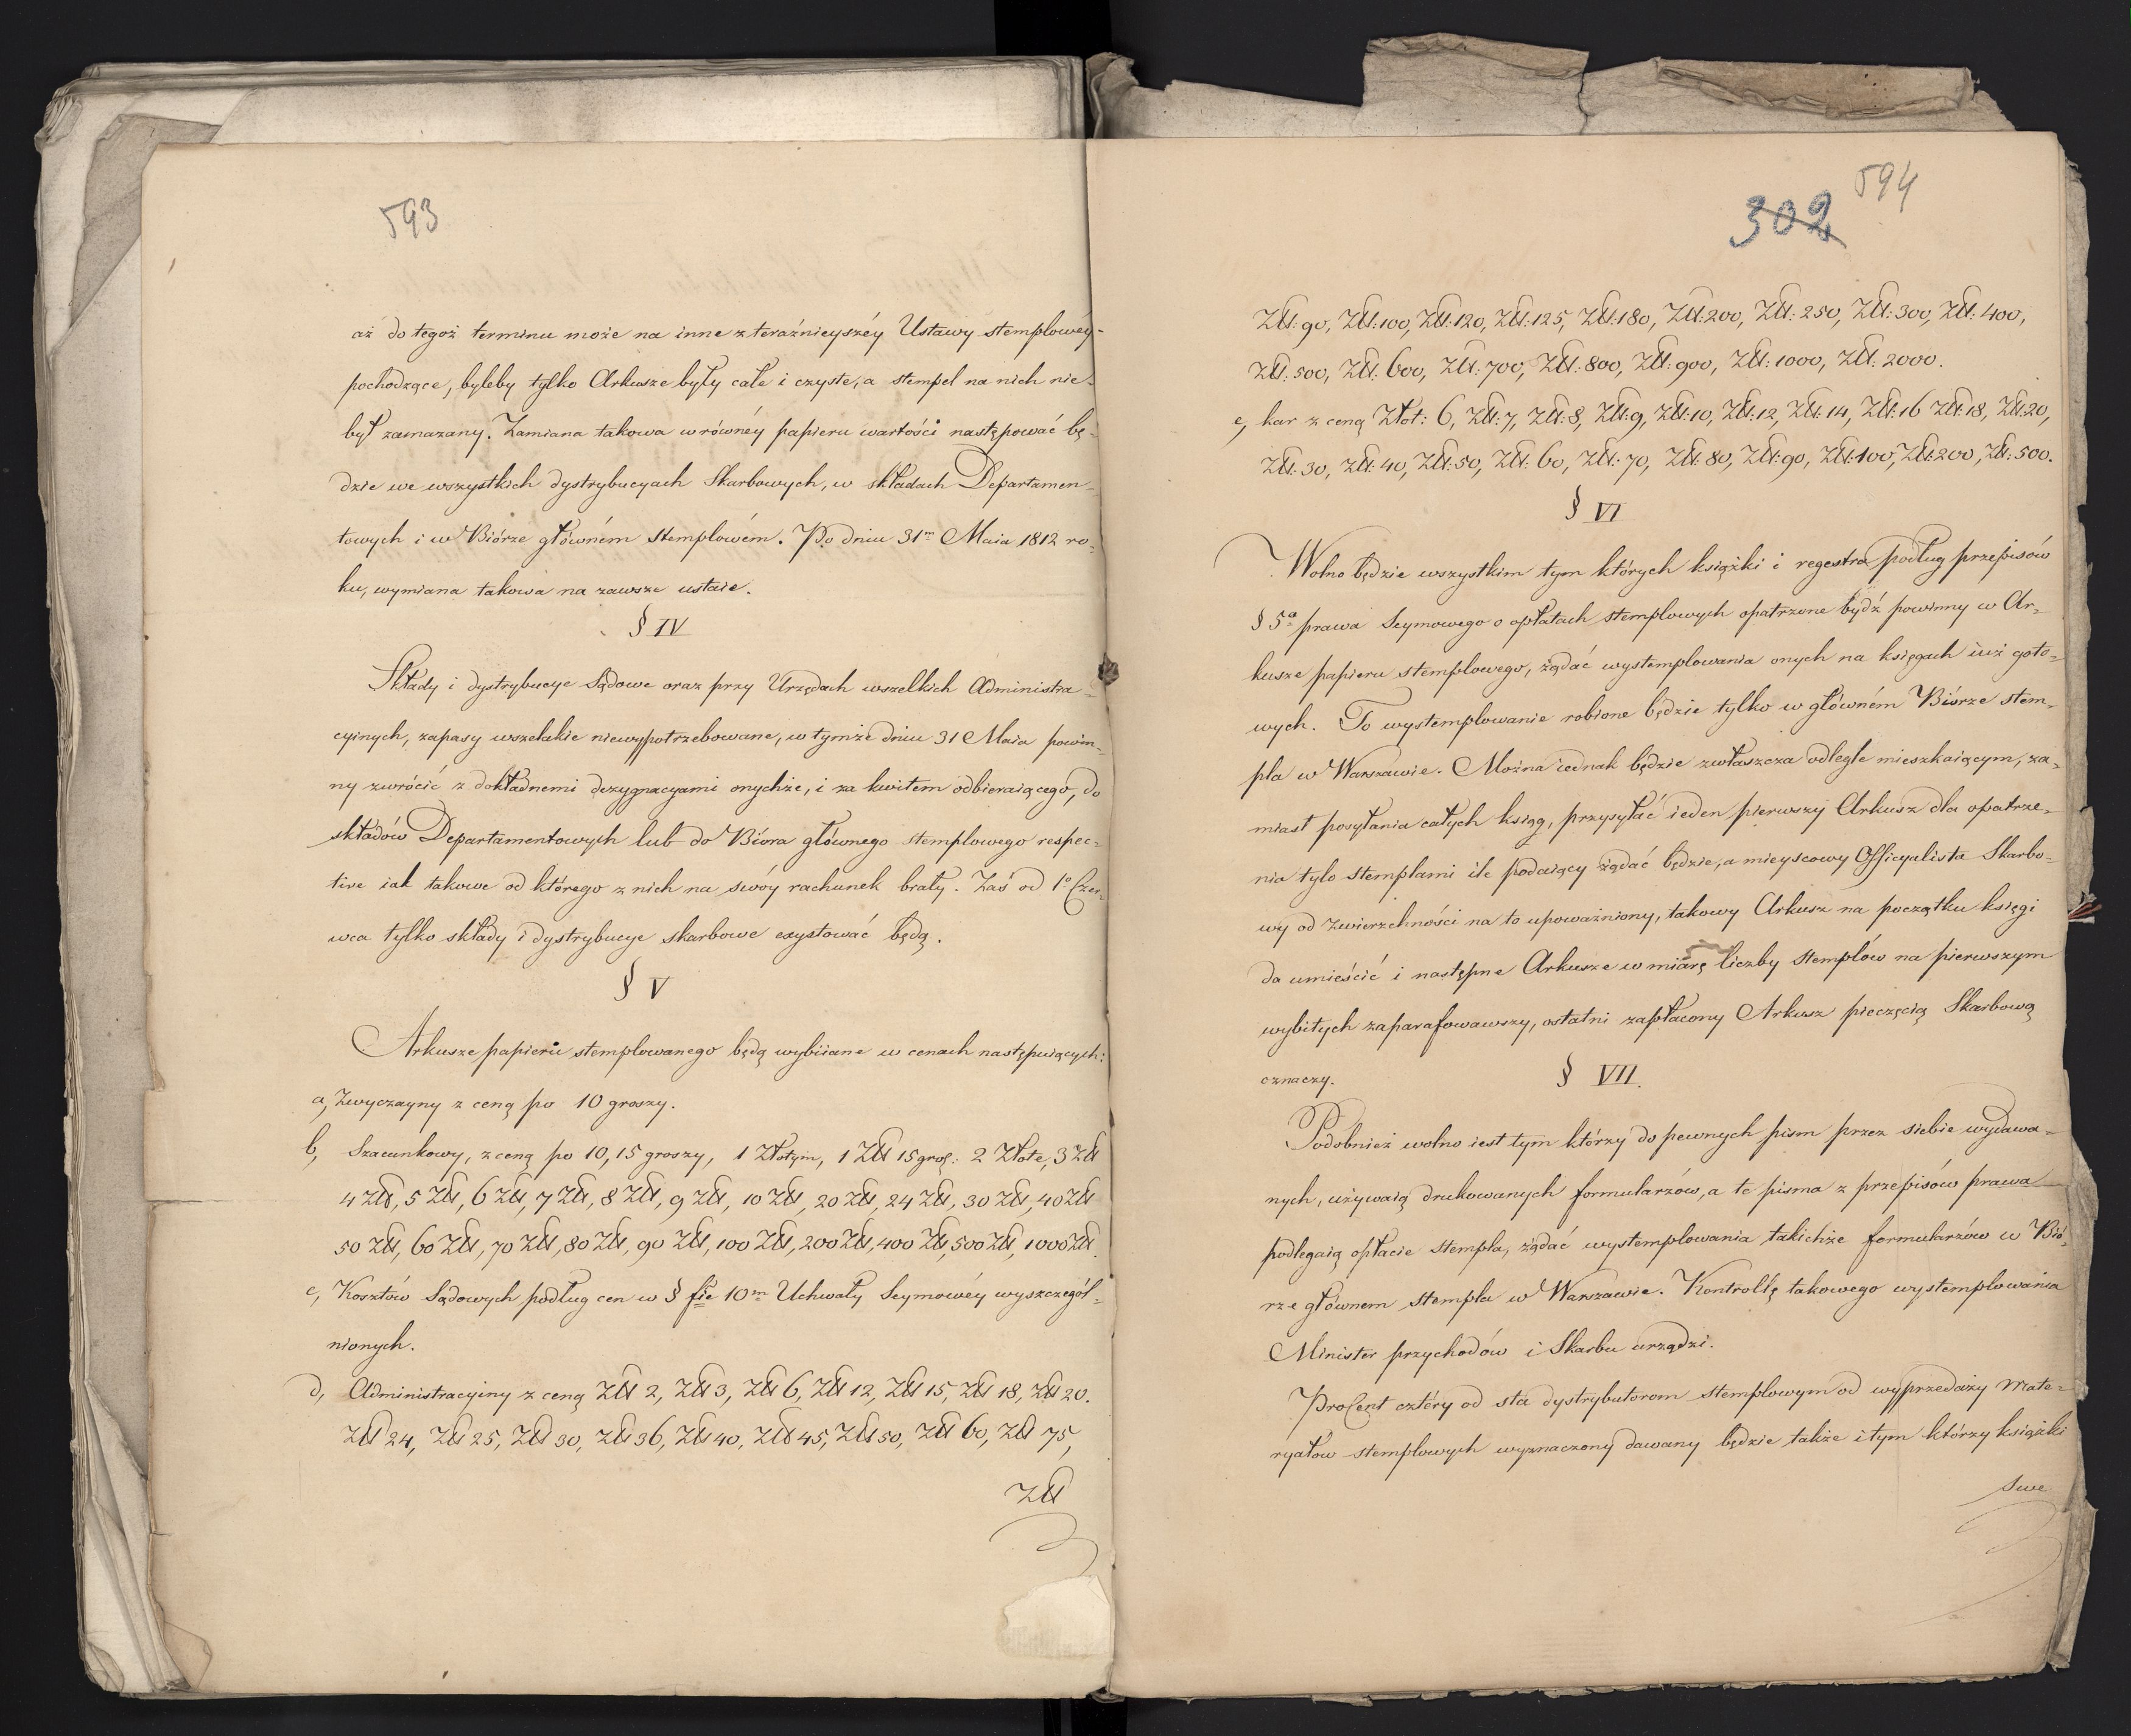 593
aż do tegoż terminu może na inne z teraźnieyszéy Ustawy stemplowéy
pochodzące, byleby tylko Arkusze były całe i czyste, a stempel na nich nie
był zamazany. Zamiana takowa w równéy papieru wartości następować bę-
dzie we wszystkich dystrybucyach Skarbowych, w składach Departamen-
towych i w Biórze główném stemplowém. Po dniu 31m Maia 1812 ro-
ku, wymiana takowa na zawsze ustaie.
§ IV
Składy i dystrybucye Sądowe oraz przy Urzędach wszelkich Administra-
cyinych, zapasy wszelakie niewypotrzebowane, w tymże dniu 31 Maia powin-
ny zwrócić z dokładnemi dezygnacyami onychże, i za kwitem odbieraiącego, do
składów Departamentowych lub do Bióra głównego stemplowego respec-
tive iak takowe od którego z nich na swóy rachunek brały. Zaś od 1o Czer-
wca tylko składy i dystrybucye skarbowe exystować będą.
§ V
Arkusze papieru stemplowanego będą wybiiane w cenach następuiących:
a, Zwyczayny z ceną po 10 groszy.
b, Szacunkowy, z ceną po 10, 15 groszy, 1 Złotym, 1 Złł 15 gros: 2 Złote, 3 Złł
4 Złł, 5 Złł, 6 Złł, 7 Złł, 8 Złł, 9 Złł, 10 Złł, 20 Złł, 24 Złł, 30 Złł, 40 Złł
50 Złł, 60 Złł, 70 Złł, 80 Złł, 90 Złł, 100 Złł, 200 Złł, 400 Złł, 500 Złł, 1000 Złł.
c, Kosztów Sądowych podług cen w § fie 10m Uchwały Seymowéy wyszczegól-
nionych.
d, Administracyiny z ceną Złł 2, Złł 3, Złł 6, Złł 12, Złł 15, Złł 18, Złł 20.
Złł 24, Złł 25, Złł 30, Złł 36, Złł 40, Złł 45, Złł 50, Złł 60, Złł 75,
Złł
594
302
Złł: 90, Złł: 100, Złł: 120, Złł: 125, Złł: 180, Złł: 200, Złł: 250, Złł: 300, Złł: 400,
Złł: 500, Złł: 600, Złł: 700, Złł: 800, Złł: 900, Złł: 1000, Złł: 2000.
e, kar z ceną Złot: 6, Złł: 7, Złł: 8, Złł: 9, Złł: 10, Złł: 12, Złł: 14, Złł: 16 Złł: 18, Złł: 20,
Złł: 30, Złł: 40, Złł: 50, Złł: 60, Złł: 70, Złł: 80, Złł: 90, Złł: 100, Złł: 200, Złł: 500.
§ VI
Wolno będzie wszystkim tym których książki i regestra podług przepisów
§ 5o prawa Seymowego o opłatach stemplowych opatrzone bydź powinny w Ar-
kusze papieru stemplowego, żądać wystemplowania onych na księgach iuż goto-
wych. To wystemplowanie robione będzie tylko w główném Biórze stem-
pla w Warszawie. Można iednak będzie zwłaszcza odlegle mieszkaiącym, za-
miast posyłania całych ksiąg, przysyłać ieden pierwszy Arkusz dla opatrze-
nia tylo stemplami ile podaiący żądać będzie, a mieyscowy Officyalista Skarbo-
wy od zwierzchności na to upoważniony, takowy Arkusz na początku księgi
da umieścić i następne Arkusze w miarę liczby stemplów na pierwszym
wybitych zaparafowawszy, ostatni zapłacony Arkusz pieczęcią Skarbową
oznaczy.
§ VII.
Podobnież wolno iest tym którzy do pewnych pism przez siebie wydawa-
nych, używaią drukowanych formularzów, a te pisma z przepisów prawa
podlegaią opłacie stempla, żądać wystemplowania takichże formularzów w Bió-
rze głównem stempla w Warszawie. Kontrollę takowego wystemplowania
Minister przychodów i Skarbu urządzi.
Procent cztéry od sta dystrybutorom stemplowym od wyprzedaży mate-
ryałow stemplowych wyznaczony dawany będzie także i tym którzy książki
swe